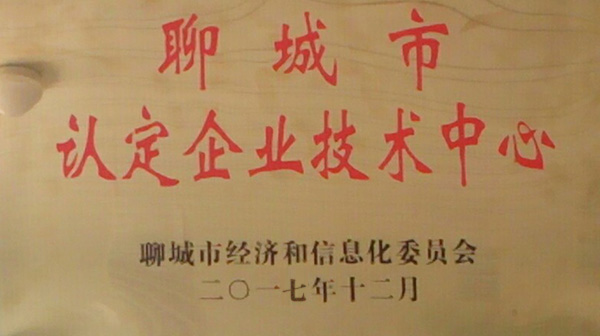 聊城市
认定企业技术中心
聊城市经济和信息化委员会
二〇一七年十二月